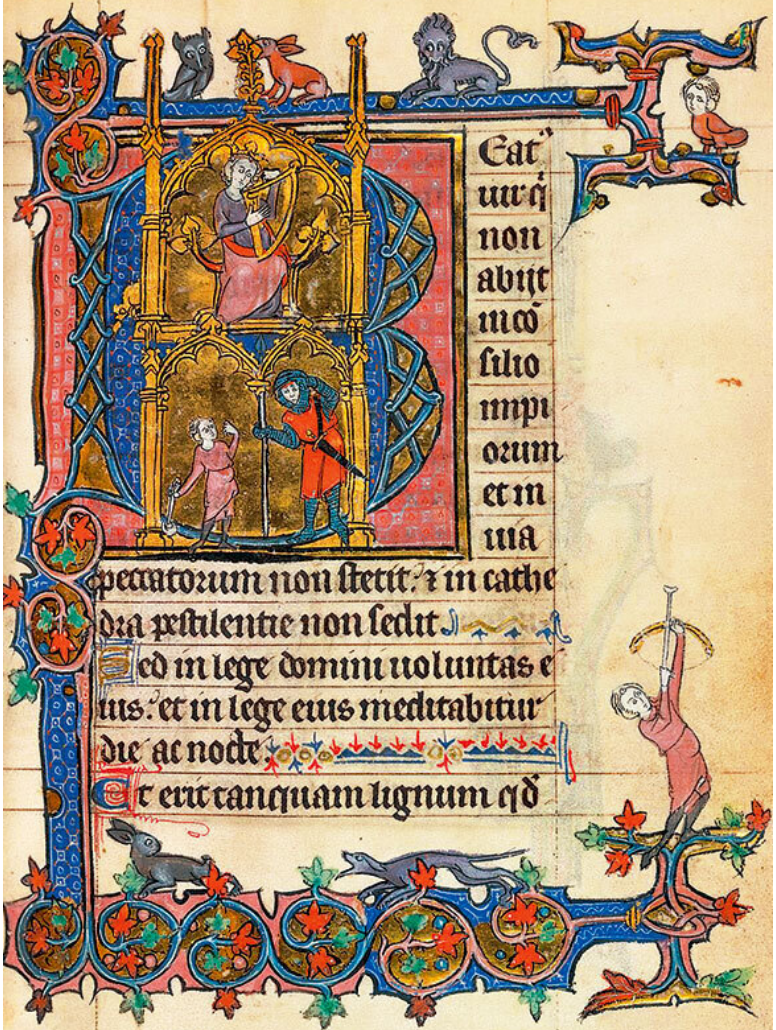 Beat(us)
uir q(ui)
non
abijt
in co(n)
silio
impi
orum
et in
uia
peccatorum non stetit: ⁊ in cathe
dra pestilentie non sedit
Sed in lege domini uoluntas e
ius: et in lege eius meditabitur
die ac nocte.
Et erit tanquam lignum qd̄